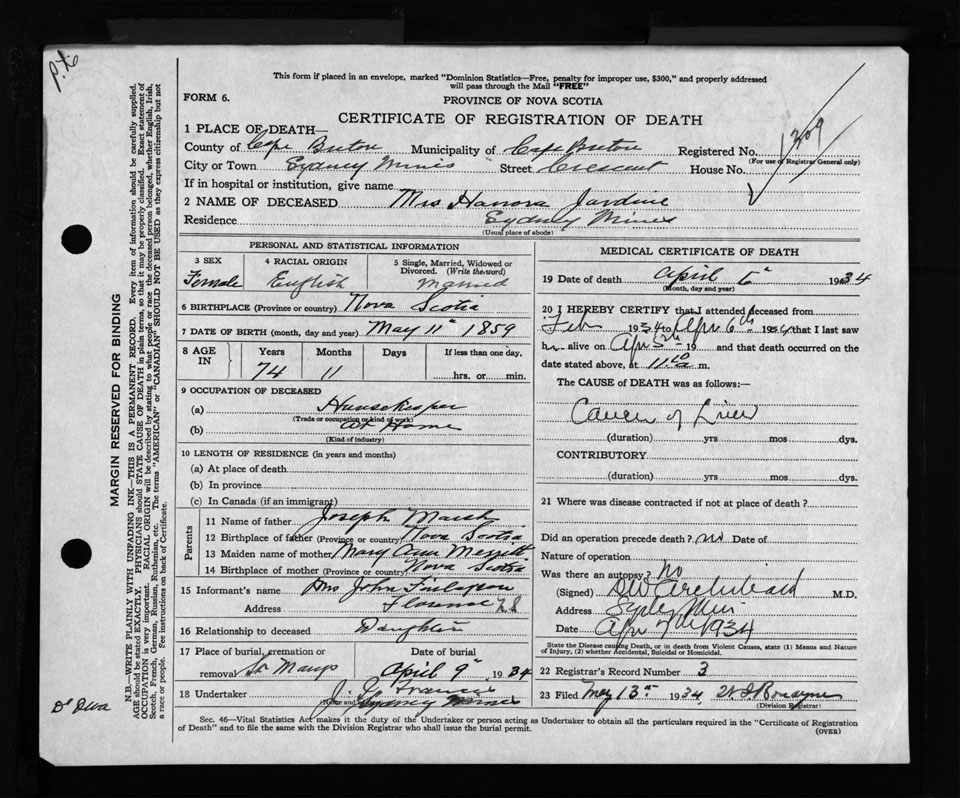 P.X.
This form if placed in an envelope, marked "Dominion Statistics—Free, penalty for improper use, $300," and properly addressed
will pass through the Mail "FREE"
FORM 6.
PROVINCE OF NOVA SCOTIA
CERTIFICATE OF REGISTRATION OF DEATH
1 PLACE OF DEATH—
County of Cape Breton Municipality of Cape Breton Registered No. 1309
(For use of Registrar General only)
City or Town Sydney Mines Street Crescent House No.
If in hospital or institution, give name
2 NAME OF DECEASED Mrs Hanora Jardine
Residence Sydney Mines
(Usual place of abode)
PERSONAL AND STATISTICAL INFORMATION
3 SEX 4 RACIAL ORIGIN 5 Single, Married, Widowed or
Divorced. (Write the word)
Female English Married
6 BIRTHPLACE (Province or country) Nova Scotia
7 DATE OF BIRTH (month, day and year) May 11th 1859
8 AGE IN Years Months Days If less than one day,
74 11 hrs. or min.
9 OCCUPATION OF DECEASED
(a) Housekeeper
(Trade or occupation or kind of work)
(b) At Home
(Kind of industry)
10 LENGTH OF RESIDENCE (in years and months)
(a) At place of death
(b) In province
(c) In Canada (if an immigrant)
Parents
11 Name of father Joseph Marsh
12 Birthplace of father (Province or country) Nova Scotia
13 Maiden name of mother Mary Ann
14 Birthplace of mother (Province or country) Nova Scotia
15 Informant's name Mrs John Finlayson
Address Florence N.S.
16 Relationship to deceased Daughter
17 Place of burial, cremation or Date of burial
removal St Marys April 9th 1934
18 Undertaker J.
(Name and address) Sydney Mines
MEDICAL CERTIFICATE OF DEATH
19 Date of death April 6th 1934
(Month, day and year)
20 I HEREBY CERTIFY that I attended deceased from
Feb 1934 to Apr 6th 1934 that I last saw
h alive on Apr 5th 19 and that death occurred on the
date stated above, at 11.10 m.
The CAUSE OF DEATH was as follows:—
Cancer of Liver
(duration) yrs mos dys.
CONTRIBUTORY
(duration) yrs mos dys.
21 Where was disease contracted if not at place of death?
Did an operation precede death? no Date of
Nature of operation
Was there an autopsy? no
(Signed) DW Archibald M.D.
Address Sydney Mines
Date Apr 7th 1934
State the Disease causing Death, or in death from Violent Causes, state (1) Means and Nature
of Injury, (2) whether Accidental, Suicidal or Homicidal.
22 Registrar's Record Number 3
23 Filed May 13th 1934
(Division Registrar)
Sec. 46—Vital Statistics Act makes it the duty of the Undertaker or person acting as Undertaker to obtain all the particulars required in the "Certificate of Registration
of Death" and to file the same with the Division Registrar who shall issue the burial permit.
(OVER)
MARGIN RESERVED FOR BINDING
N.B.—WRITE PLAINLY WITH UNFADING INK—THIS IS A PERMANENT RECORD. Every item of information should be carefully supplied.
AGE should be stated EXACTLY. PHYSICIANS should STATE CAUSE OF DEATH in plain terms, so that it may be properly classified. Exact statement of
OCCUPATION is very important. RACIAL ORIGIN will be described by stating to what people or race the deceased person belonged, whether English, Irish,
Scotch, French, German, Russian, Ruthenian, etc. The terms "AMERICAN" or "CANADIAN" SHOULD NOT BE USED as they express citizenship but not
a race or people. See instructions on back of Certificate.